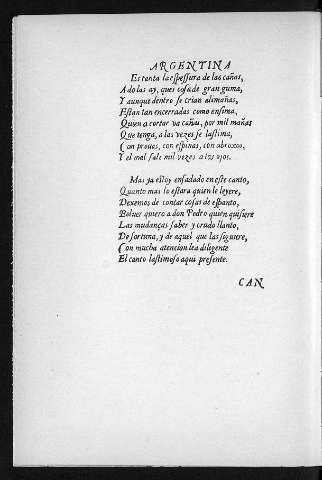 ARGENTINA
Es tanta la espessura de las cañas,
A do las ay, ques cosa de gran guma,
Y aunque dentro se crian alimañas,
Estan tan encerradas como ensima.
Quien a cortar va cañas, por mil mañas
Que tenga, a las vezes se lastima,
Con prouas, con espinas, con abroxos,
Y el mal sale mil vezes a los ojos.
Mas ya estoy enfadado en este canto,
Quanto mas lo estara quien le leyere,
Dexemos de contar cosas de espanto,
Boluer quiero a don Pedro quien quisiere
Las mudanças saber y crudo llanto,
De fortuna, y de aquel que las siguiere,
Con mucha atencion lea diligente
El canto lastimoso aqui presente.
CAN